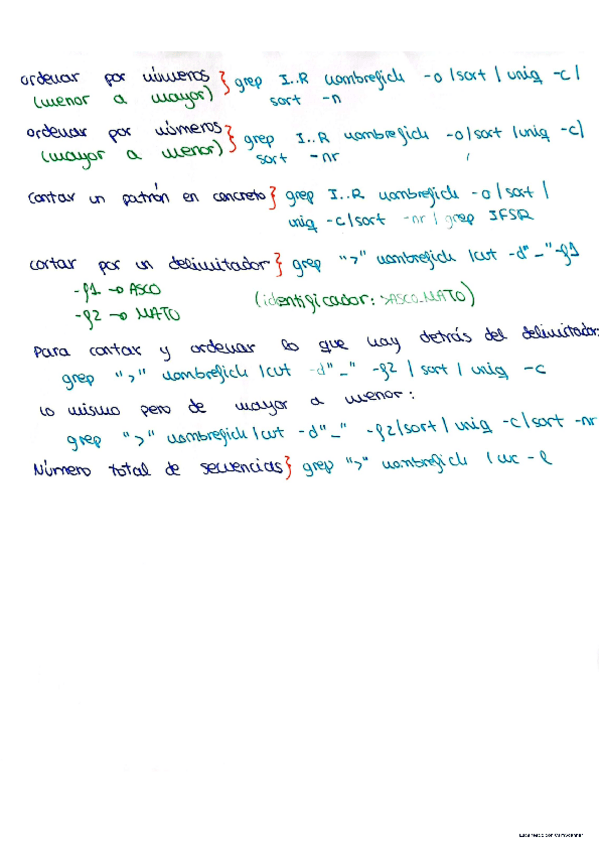 ordenar por números } grep I..R nombrefich -o |sort | uniq -c |
(menor a mayor) sort -n
ordenar por números } grep I..R nombrefich -o|sort |uniq -c|
(mayor a menor) sort -nr
Contar un patrón en concreto } grep I..R nombrefich -o | sort |
uniq -c|sort -nr | grep IFSR
cortar por un delimitador } grep ">" nombrefich |cut -d"_" -f1
-f1 → ASCO (identificador: >ASCO_MATO)
-f2 → MATO
Para contar y ordenar lo que hay detrás del delimitador:
grep ">" nombrefich |cut -d"_" -f2 | sort | uniq -c
Lo mismo pero de mayor a menor:
grep ">" nombrefich|cut -d"_" -f2|sort| uniq -c|sort -nr
Número total de secuencias } grep ">" nombrefich | wc -l